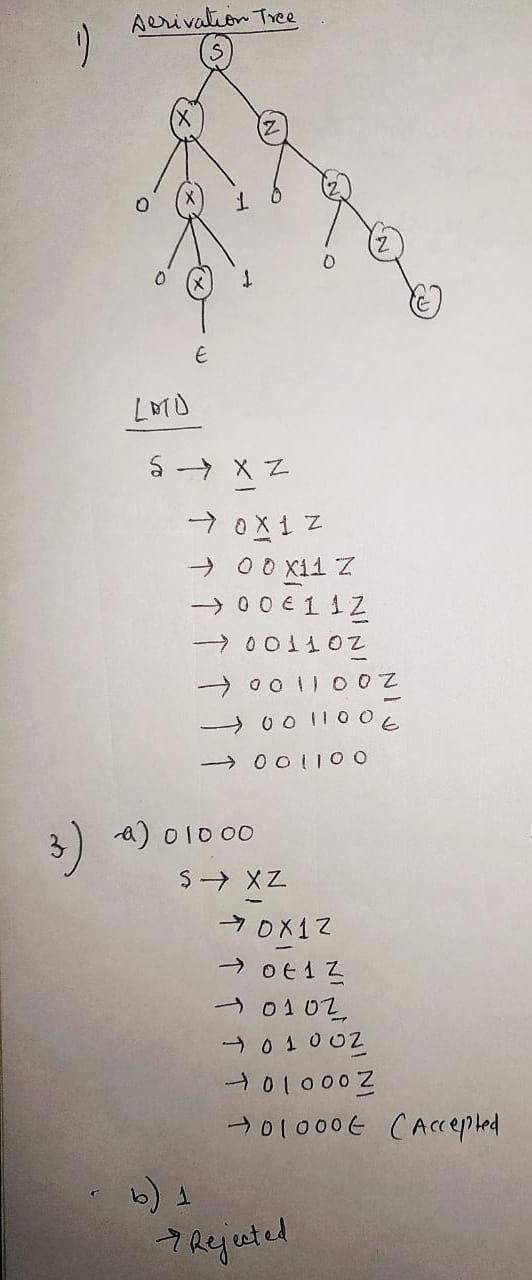 1) Derivation Tree
S
X Z
0 X 1 0 Z
0 X 1 0 Z
ε ε
LMD
S → X Z
→ 0 X 1 Z
→ 0 0 X 1 1 Z
→ 0 0 ε 1 1 Z
→ 0 0 1 1 0 Z
→ 0 0 1 1 0 0 Z
→ 0 0 1 1 0 0 ε
→ 0 0 1 1 0 0
3) a) 01000
S → XZ
→ 0X1Z
→ 0ε1Z
→ 010Z
→ 0100Z
→ 01000Z
→ 01000ε (Accepted
b) 1
→ Rejected